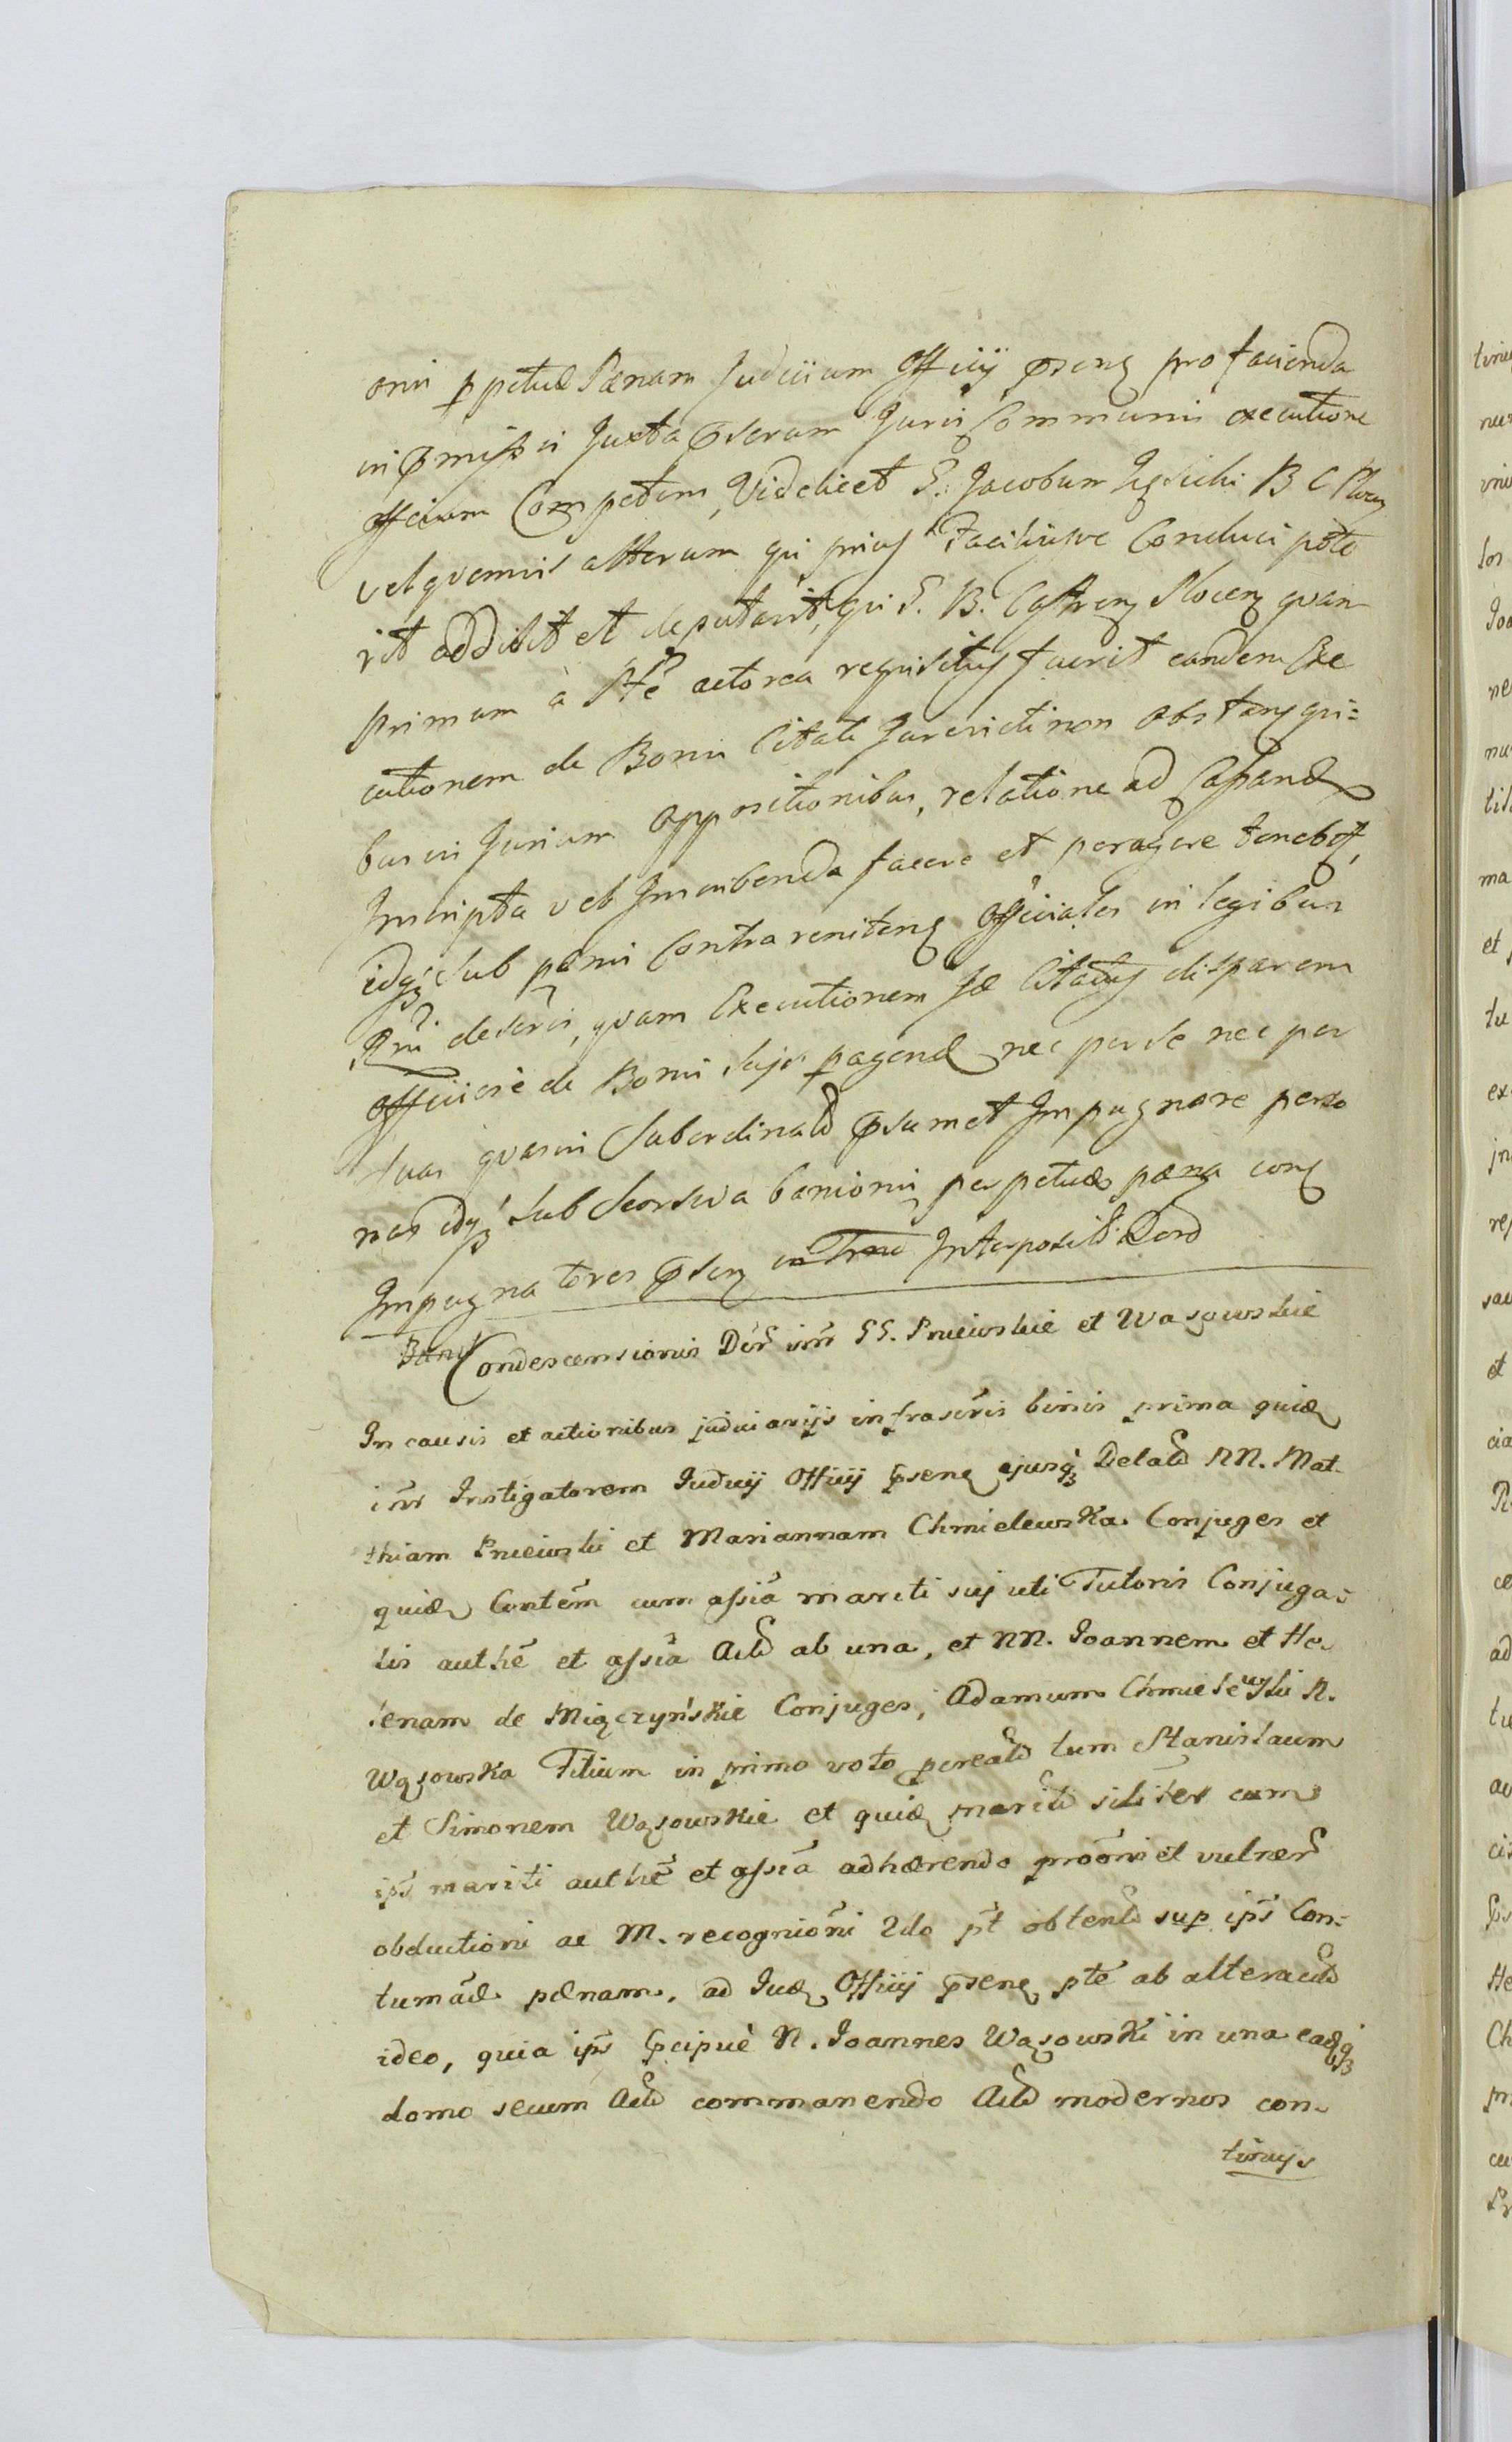 onis ppetuæ Pænam Judicium Officij pseng pro facienda
in pmissis Juxta pseram Juris Communis executione
officium Competens, Videlicet G. Jacobum B C Ploceng
vel quemvis alterum qui prius faciliusve Conduci pote
rit addidit et deputavit, qui G. B. Castreng Ploceng quam
primum à Pte actorea requisitus fuerit eandem Exe
cutionem de Bonis Citati Jurevicti non obstantqui=
bus in Jurium oppositionibus, relatione ad Cassand
Inscripta vel Inscribenda facere et peragere teneb,
idqz sub pænis Contra reniteng officiales in legibus
Rni descris, quam Executionem Jæ Citatus disparem
officiose de Bonis sujs pagend nec per se nec per
suas quasvis Subordinatd psumet Impugnare perso
nas idqz sub seorsiva banionis perpetuæ pæna cong
Impugnatores pseng in Trno Interposit Dcrd
Condescensionis Der inr GG. Pniewskie et Wasowskie
In causis et actionibus judiciarijs infrascris binis prima quidæ
inr Instigatorem Judicij Officij pseng ejusqz Delatd NN. Mat-
thiam Pniewski et Mariannam Chmielewska Conjuges et
quidæ Contem cum assia mariti suj uti Tutoris Conjuga=
lis authe et assia Actd ab una, et NN. Joannem et He-
lenam de Miączyńskie Conjuges, Adamum Chmielewski N.
Wąsowska Filium in primo voto pcreatd tum Stanislaum
et Simonem Wąsowskie et quidæ maritd siliter cum
ips mariti authe et assia adhærendo proõni et vulner
obductioni ac M. recognioni 2do pt obtent sup ips Con=
tumad pænam, ad Jud Officij pseng pte ab altera citd
ideo, quia ips pcipuè N. Joannes Wąsowski in una eadqz
domo secum Actd commanendo Actd modernos con-
tinuys